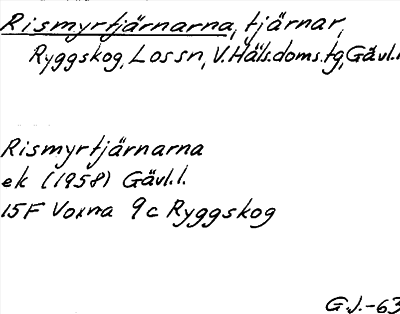 Rismyrtjärnarna, tjärnar,
Ryggskog, Lossn, V.Häls.doms.tg, Gävl.l
Rismyrtjärnarna
ek (1958) Gävl.l.
15F Voxna 9c Ryggskog
G.J.-63